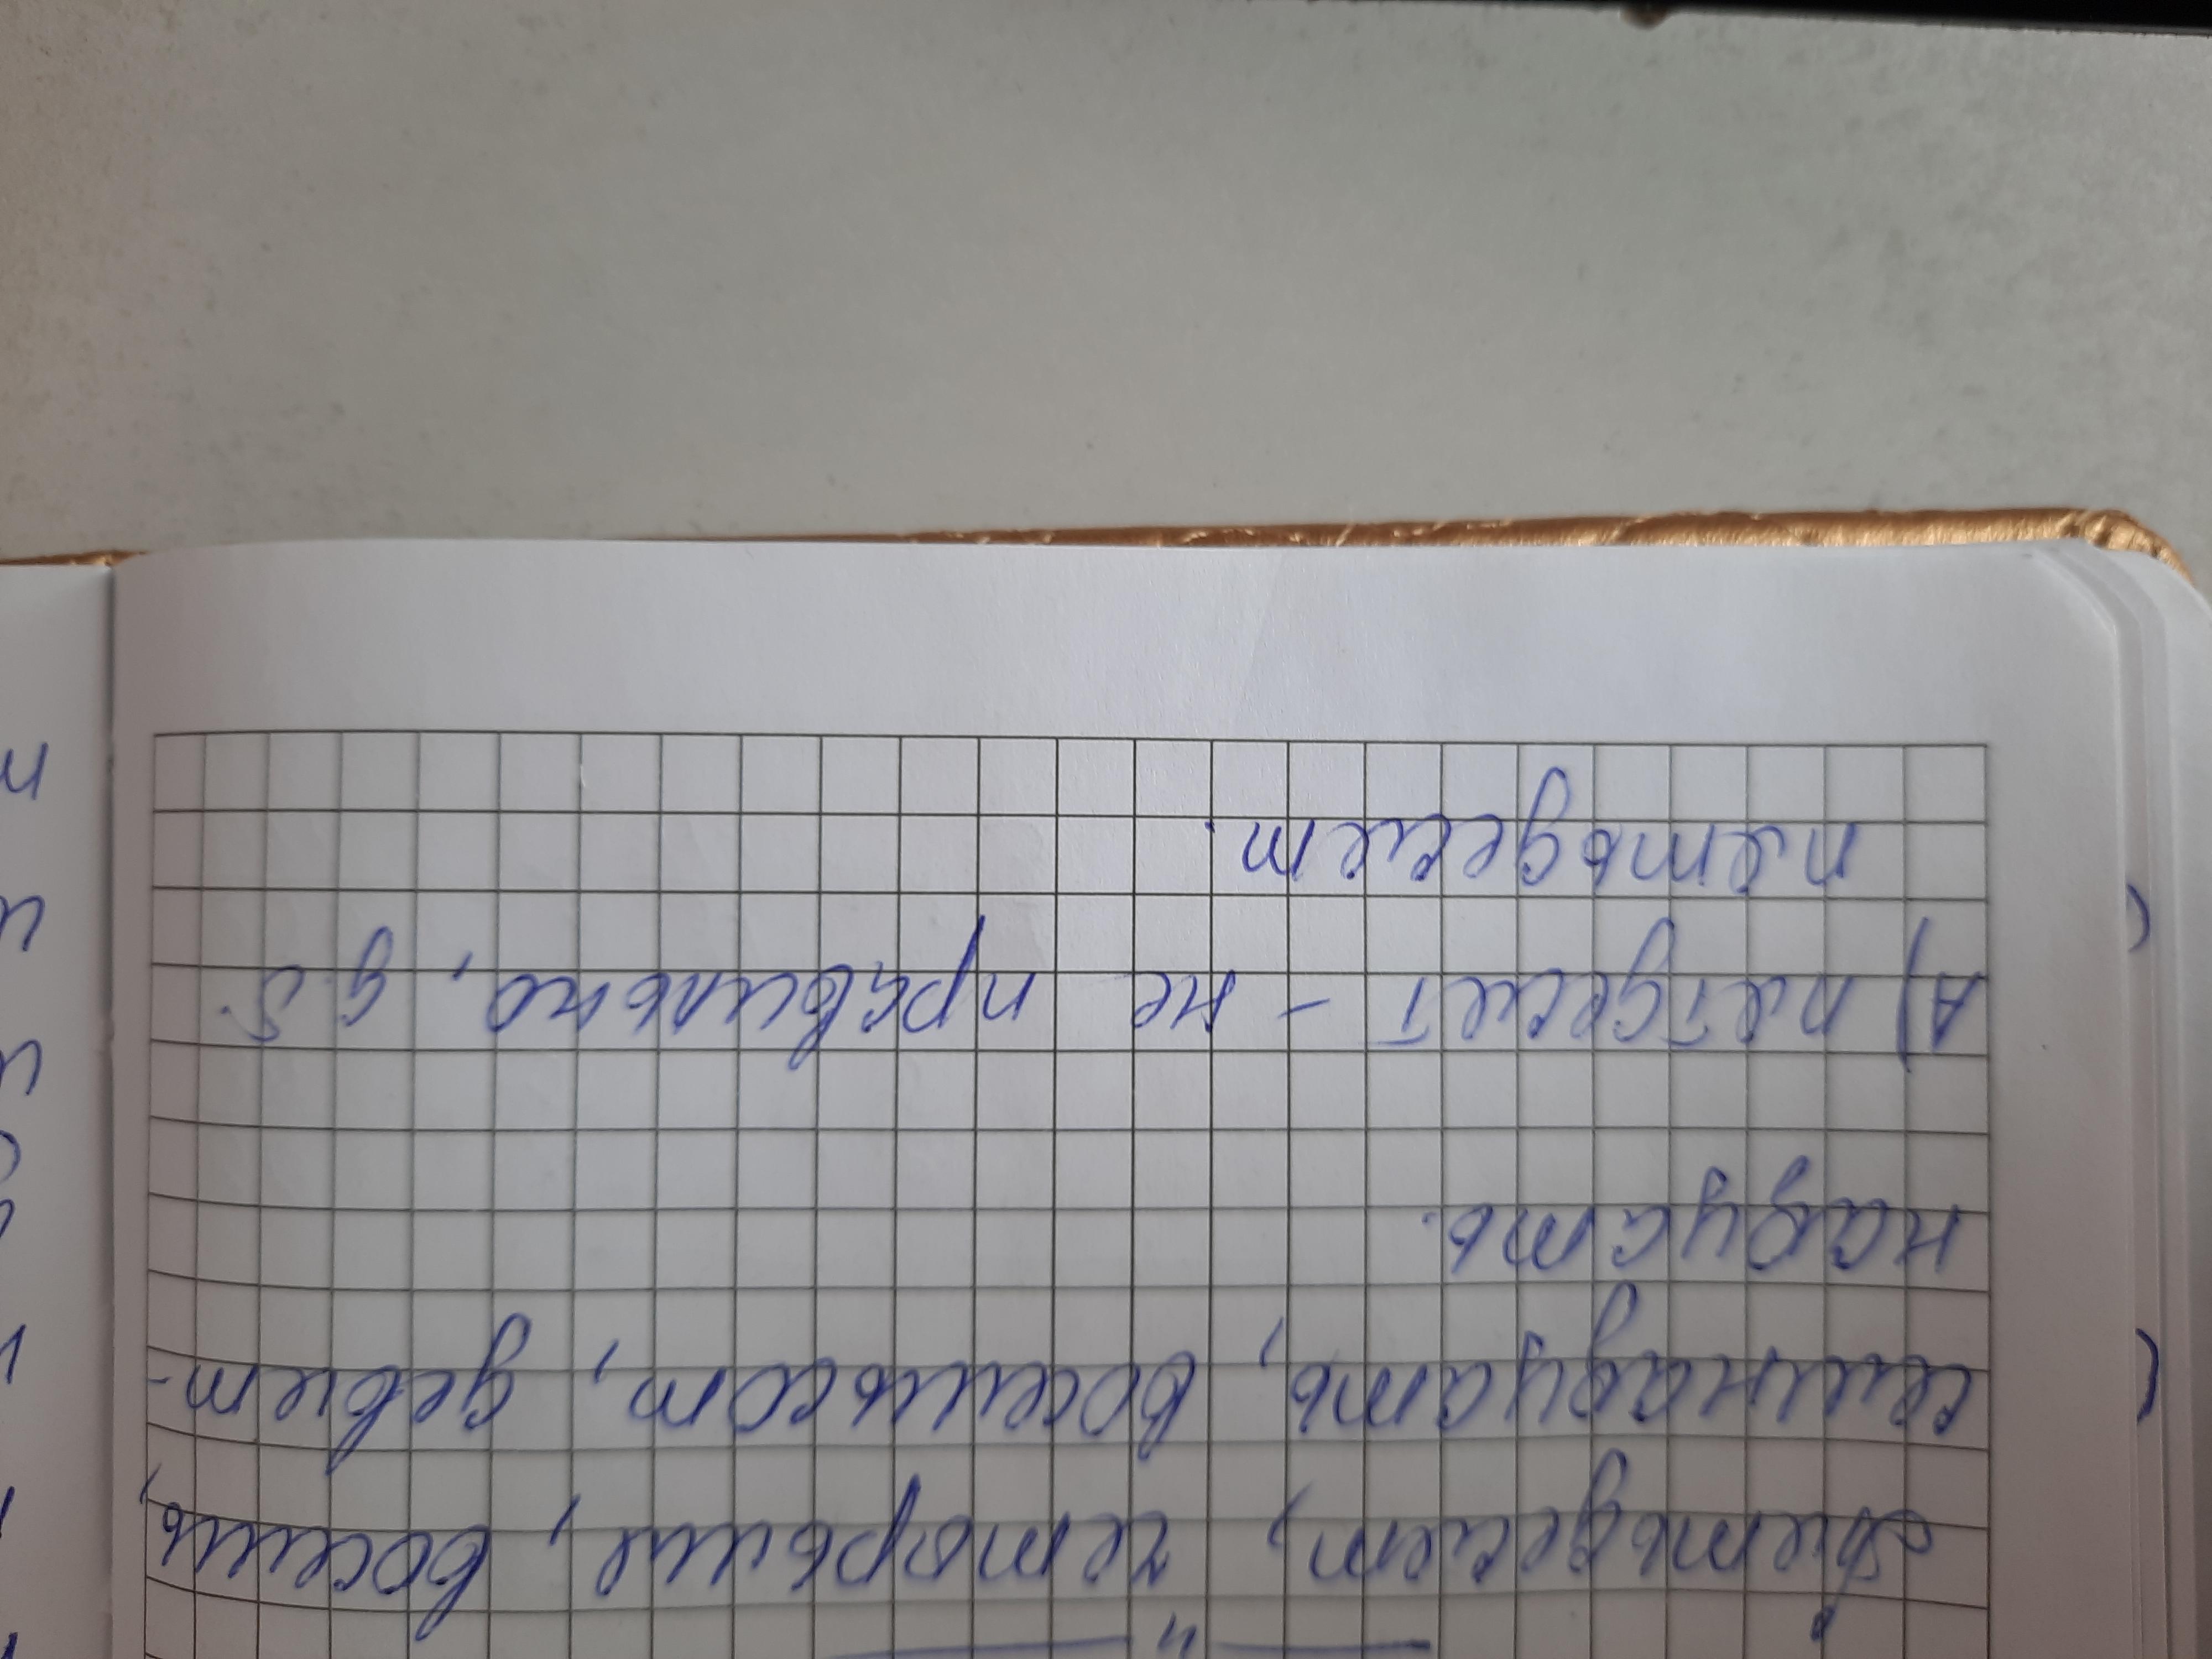 Пятьдесят, четырьмя, восемь,
семнадцать, восемьсот, девят-
надцать.
А) пятдесят - не правильно, д.б.
пятьдесят.